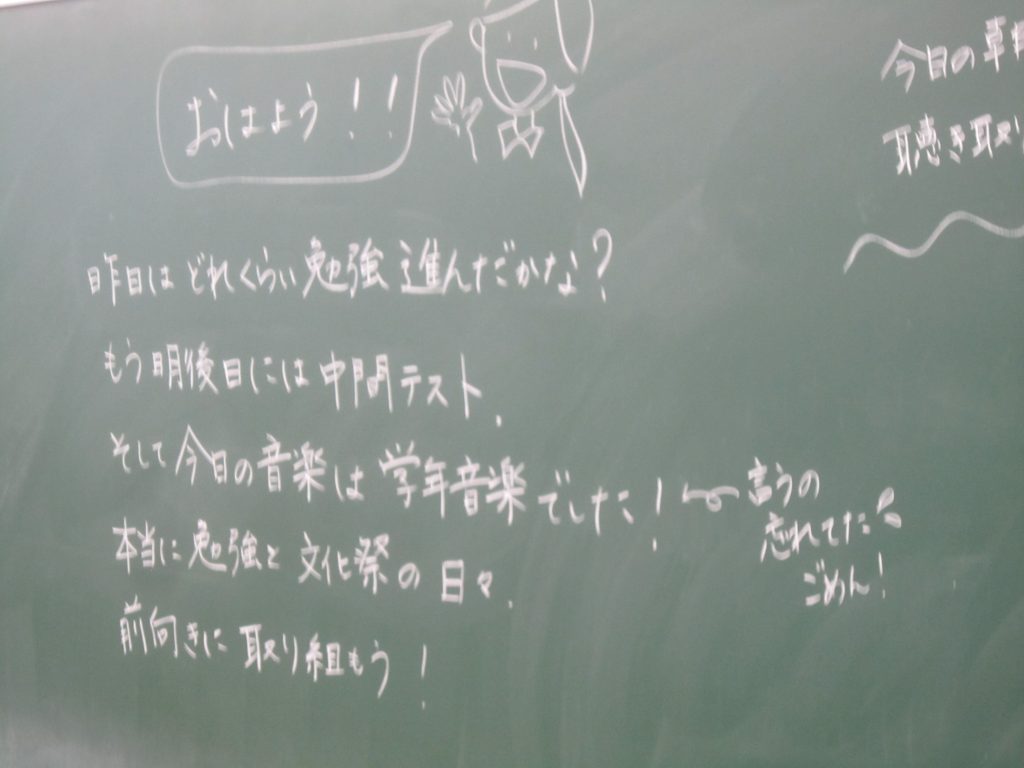 おはよう!!
今日の
聴き取り
昨日はどれくらい勉強進んだかな?
もう明後日には中間テスト.
そして今日の音楽は学年音楽でした!
言うの
忘れてた
ごめん!
本当に勉強と文化祭の日々.
前向きに取り組もう!